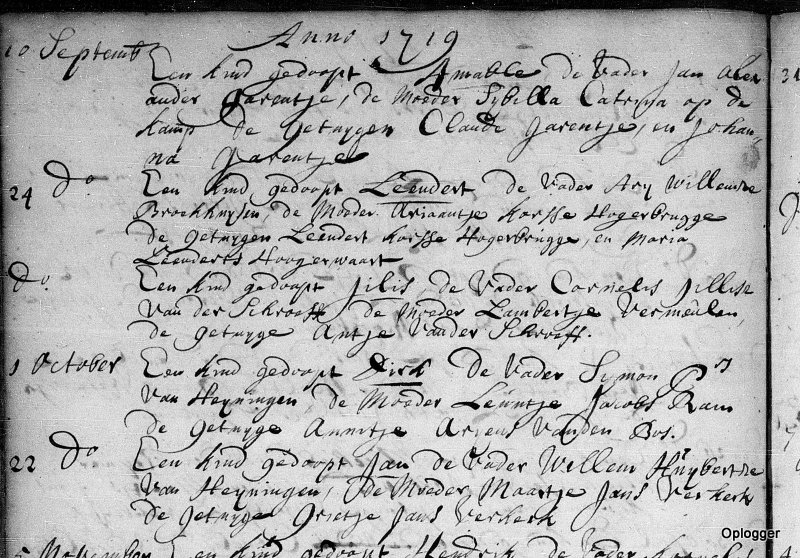 Anno 1719
10 Septemb
Een kind gedoopt Amable, de Vader Jan Alex
ander Garentje, de Moeder Sybilla Catryna op de
kamp de Getuygen Claude Garentje, en Johan-
na Garentje
24 do Een kind gedoopt Leendert de Vader Ary Willemse
Broekhuysen, de Moeder Ariaantje Korsse Hogerbrugge
de getuygen Leendert Korsse Hogerbrugge, en Maria
Leenderts Hoogerwaart
do Een kind gedoopt Jilis, de Vader Cornelis Jillise
van der Schroeff de Moeder Lambertje Vermeulen,
de getuyge Antje Vander Schroeff.
1 October Een kind gedoopt Dirk de Vader Symon
van Heyningen, de Moeder Leuntje Jacobs Ram
de getuyge Annitje Ariens Vanden Bos.
22 do Een kind gedoopt Jan de Vader Willem Huybertse
van Heyningen, de Moeder Maartje Jans Verkerk
de Getuyge Grietje Jans Verkerk
November Een kind gedoopt Hendrik de Vader
Oplogger